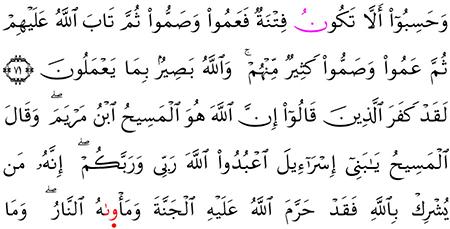 وَحَسِبُوٓا۟ أَلَّا تَكُونُ فِتْنَةٌ فَعَمُوا۟ وَصَمُّوا۟ ثُمَّ تَابَ ٱللَّهُ عَلَيْهِمْ
ثُمَّ عَمُوا۟ وَصَمُّوا۟ كَثِيرٌ مِّنْهُمْ ۚ وَٱللَّهُ بَصِيرٌۢ بِمَا يَعْمَلُونَ ٧١
لَقَدْ كَفَرَ ٱلَّذِينَ قَالُوٓا۟ إِنَّ ٱللَّهَ هُوَ ٱلْمَسِيحُ ٱبْنُ مَرْيَمَ ۖ وَقَالَ
ٱلْمَسِيحُ يَـٰبَنِىٓ إِسْرَٰٓءِيلَ ٱعْبُدُوا۟ ٱللَّهَ رَبِّى وَرَبَّكُمْ ۖ إِنَّهُۥ مَن
يُشْرِكْ بِٱللَّهِ فَقَدْ حَرَّمَ ٱللَّهُ عَلَيْهِ ٱلْجَنَّةَ وَمَأْوَىٰهُ ٱلنَّارُ ۖ وَمَا